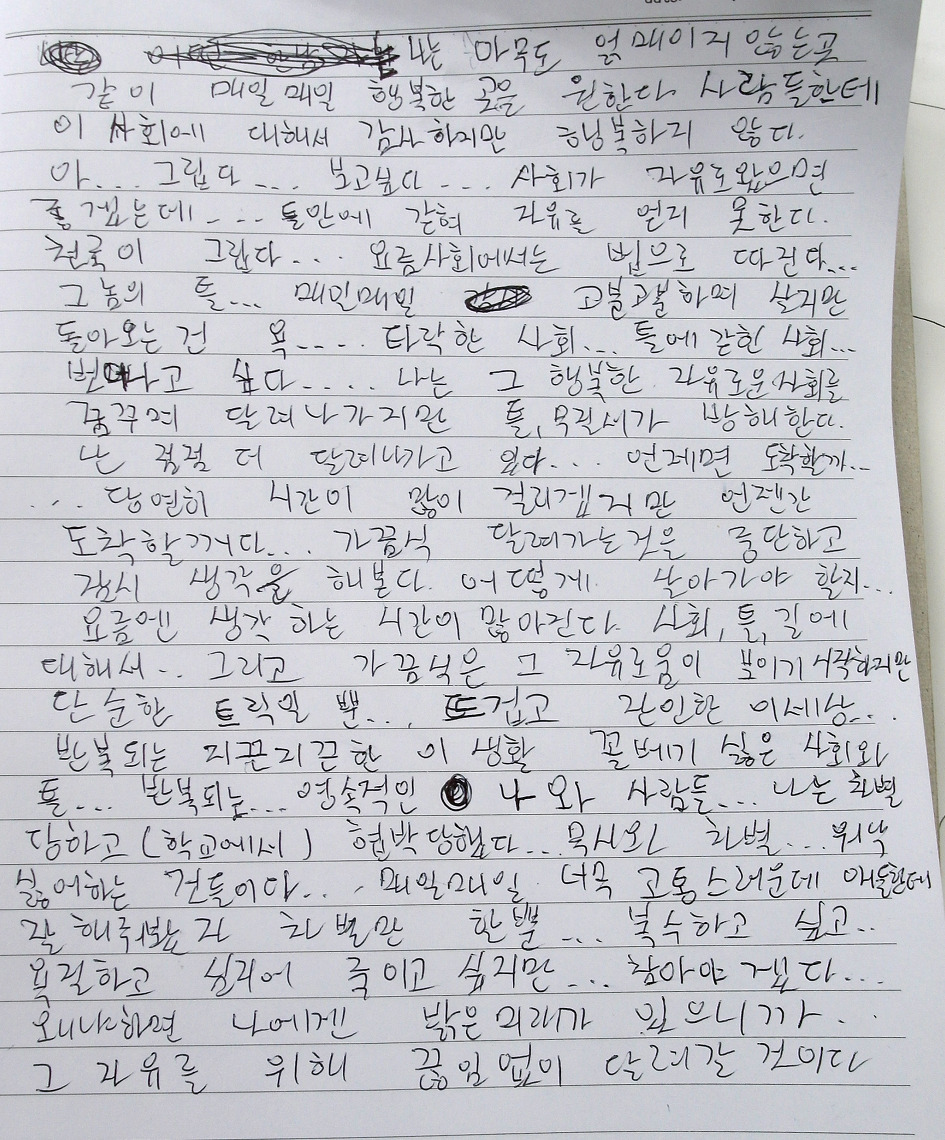 나는 아무도 얽매이지 않는곳
같이 매일매일 행복한 곳을 원한다 사람들한테
이 사회에 대해서 감사하지만 행복하지 않다.
아... 그립다.... 보고싶다.... 사회가 자유로왔으면
좋겠는데.... 틀안에 갇혀 자유를 얻지 못한다.
천국이 그립다... 요즘사회에서는 법으로 따진다...
그놈의 틀... 매일매일 고불고불하며 살지만
돌아오는 건 욕.... 타락한 사회... 틀에갇힌 사회...
벗어나고 싶다..... 나는 그 행복한 자유로운사회를
꿈꾸며 달려나가지만 틀, 무질서가 방해한다.
난 점점 더 달려나가고 있다.... 언제면 도착할까..
.. 당연히 시간이 많이 걸리겠지만 언젠간
도착할꺼다... 가끔식 달려가는것을 중단하고
잠시 생각을 해본다. 어떻게 살아가야 할지...
요즘엔 생각하는 시간이 많아진다 사회, 틀, 길에
대해서.. 그리고 가끔식은 그 자유로움이 보이기시작하지만
단순한 트릭일 뿐... 뜨겁고 잔인한 이세상...
반복되는 지끈지끈한 이 생활 꼴베기 싫은 사회와
틀... 반복되는... 영속적인 나와 사람들... 나는 차별
당하고 (학교에서) 협박당했다... 욕시와 차별... 워낙
싫어하는 것들이다... 매일매일 너무 고통스러운데 애들한테
잘해줘봤자 차별만 한뿐... 복수하고 싶고..
욕질하고 심지어 죽이고 싶지만... 참아야겠다...
왜냐하면 나에겐 밝은미래가 있으니까..
그 자유를 위해 끊임없이 달려갈 것이다